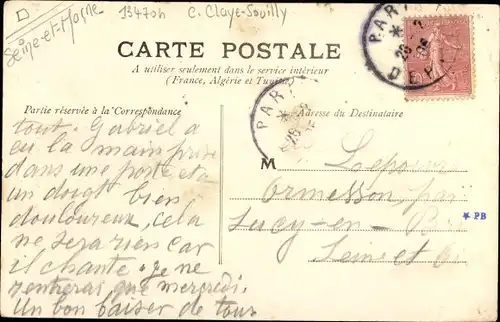 Seine-et-Marne
134704
C. Claye-Souilly
CARTE POSTALE
A utiliser seulement dans le service intérieur
(France, Algérie et Tunisie)
PARIS
DEP.
PARIS
Partie réservée à la Correspondance
Adresse du Destinataire
tout. Gabriel a
eu la main prise
dans une porte et a
un doigt bien
douloureux, cela
ne sera rien car
il chante. je ne
rentrerai que mercredi.
Un bon baiser de tous
M Lepoivre
Ormesson par
Sucy-en-B
Seine et O
* PB